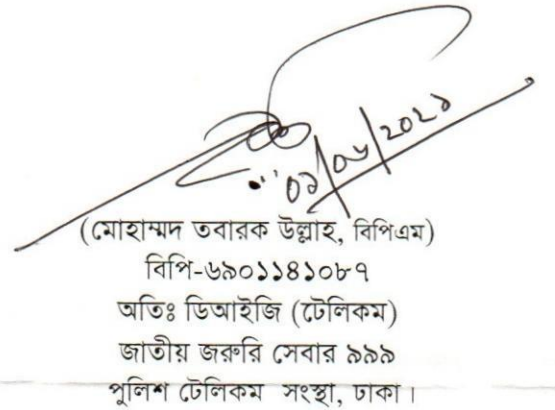 ০১/০৬/২০২১
(মোহাম্মদ তবারক উল্লাহ, বিপিএম)
বিপি-৬৯০১১৪১০৮৭
অতিঃ ডিআইজি (টেলিকম)
জাতীয় জরুরি সেবার ৯৯৯
পুলিশ টেলিকম সংস্থা, ঢাকা।